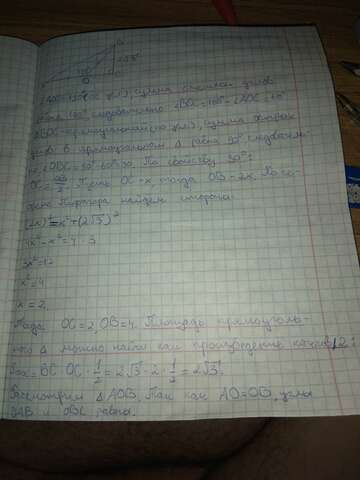 ∠AOC=120° (по усл), сумма смежных углов
равна 180° следовательно ∠BOC=180°-∠AOC=60°
△BOC-прямоугольный (по усл), сумма острых
углов в прямоугольном △ равна 90° следователь-
но, ∠OBC=90°-60°=30°. По свойству 30°:
OC=OB/2. Пусть OC-x, тогда OB-2x. По те-
найдем стороны:
(2x)²=x²+(2√3)²
4x²-x²=4·3
3x²=12
x²=4
x=2.
Тогда OC=2, OB=4. Площадь прямоуголь-
ного △ можно найти как произведение катетов/2:
=BC·OC·1/2=2√3·2·1/2=2√3.
Рассмотрим △AOB. Так как AO=OB, углы
OAB и OBA равны.